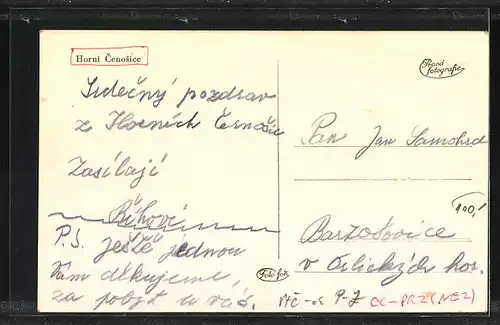 Horní Čenošice
Pravá fotografie
Srdečný pozdrav
z Horních Černošic
Zasílají
Říhovi
P.S. ještě jednou
Vám děkujeme,
za pobyt u vás.
Pan Jan Samohrd
Bartošovice
v Orlických hor.
100,-
Foto-fon
VČ-os P-Z
CC-PRZ(NEZ)